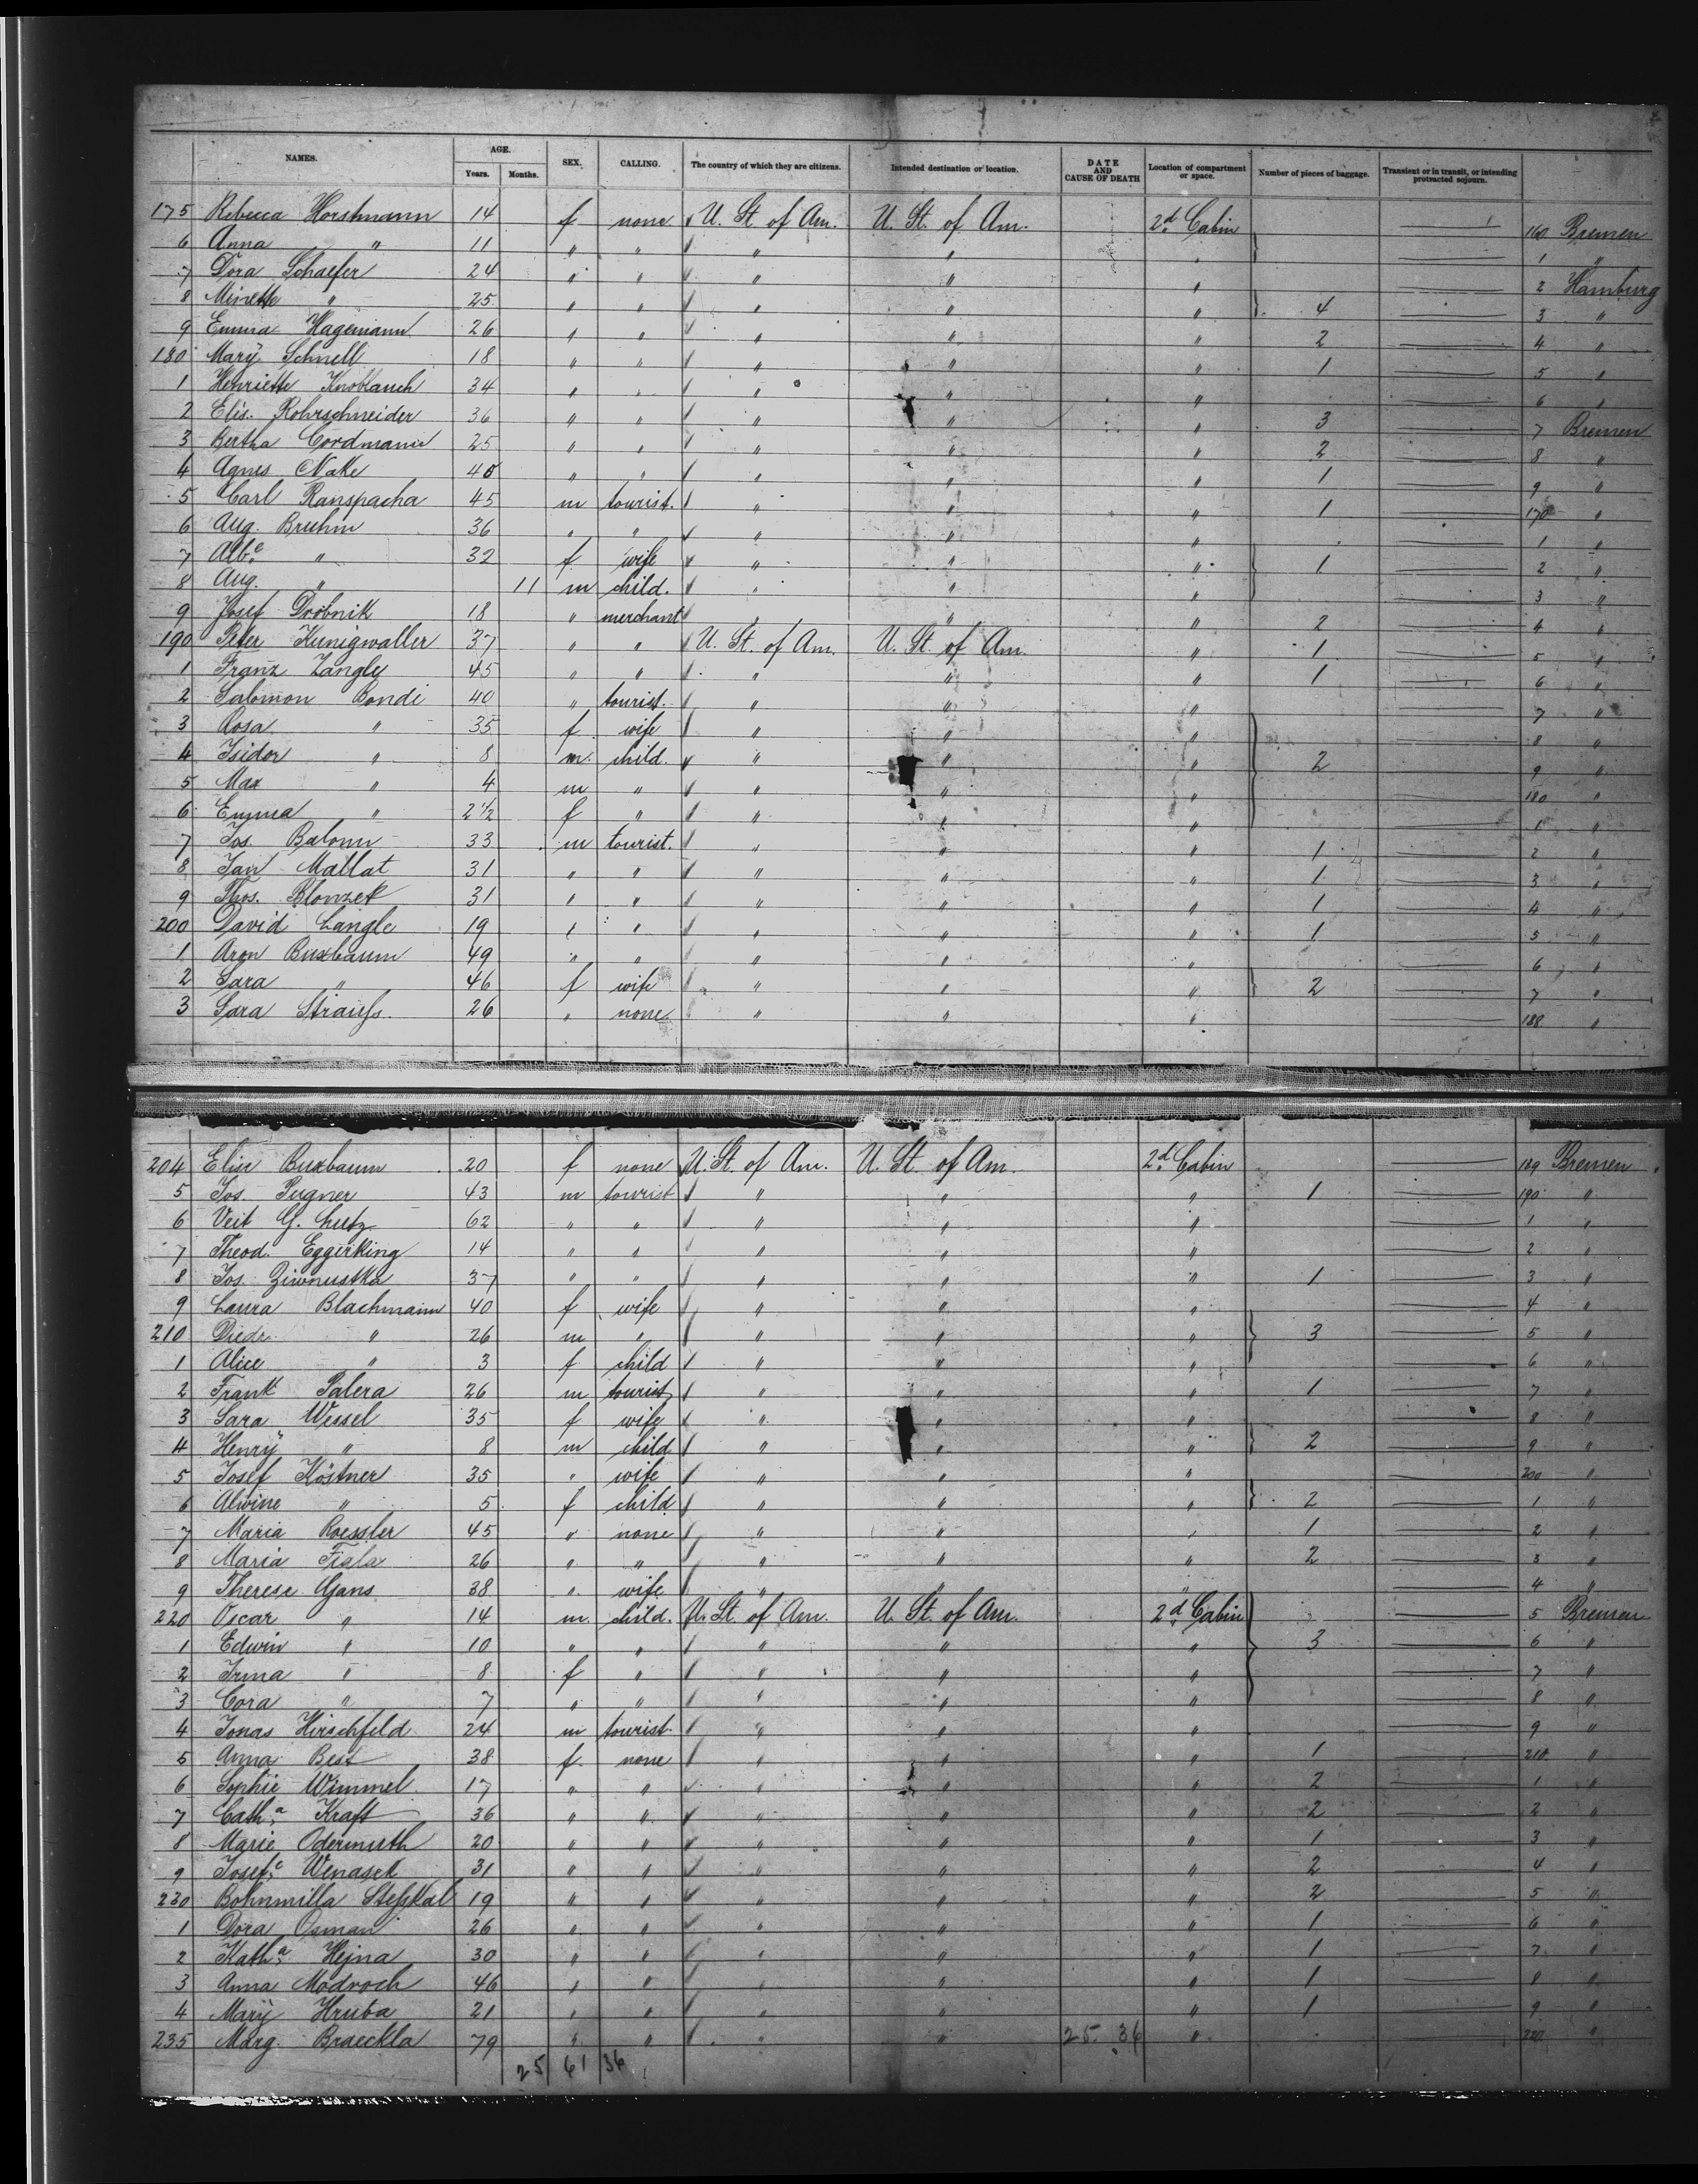 NAMES. AGE. Years. Months. SEX. CALLING. The country of which they are citizens. Intended destination or location. DATE AND CAUSE OF DEATH Location of compartment or space. Number of pieces of baggage. Transient or in transit, or intending protracted sojourn.
175 Rebecca Horstmann 14 f none U. St. of Am. U. St. of Am. 2d Cabin 160 Bremen
6 Anna " 11 " " " " " 1 "
7 Dora Schaefer 24 " " " " " 2 Hamburg
8 Minette " 25 " " " " " 4 3 "
9 Emma Hagemann 26 " " " " " 2 4 "
180 Mary Schnell 18 " " " " " 1 5 "
1 Henriette Knoblauch 34 " " " " " 6 "
2 Elis. Rohrschneider 36 " " " " " 3 7 Bremen
3 Bertha Cordmann 25 " " " " " 2 8 "
4 Agnes Nake 40 " " " " " 1 9 "
5 Carl Ranspacha 45 m tourist. " " " 1 170 "
6 Aug. Bruhm 36 " " " " " 1 "
7 Albe " 32 f wife " " " 1 2 "
8 Aug. " 11 m child. " " " 3 "
9 Josef Drobnik 18 " merchant " " " 2 4 "
190 Peter Kunigwaller 37 " " U. St. of Am. U. St. of Am. " 1 5 "
1 Franz Zangly 45 " " " " " 1 6 "
2 Salomon Bondi 40 " tourist. " " " 7 "
3 Rosa " 35 f wife " " " 8 "
4 Isidor " 8 m. child. " " " 2 9 "
5 Max " 4 m " " " " 180 "
6 Emma " 2 1/2 f " " " " 1 "
7 Jos. Balonn 33 m tourist. " " " 1 2 "
8 Jan Mallat 31 " " " " " 1 3 "
9 Thos. Blonzek 31 " " " " " 1 4 "
200 David Langle 19 " " " " " 1 5 "
1 Aron Buxbaum 49 " " " " " 6 "
2 Sara " 46 f wife " " " 2 7 "
3 Sara Strauss. 26 " none " " " 188 "
204 Elise Buxbaum 20 f none U. St. of Am. U. St. of Am. 2d Cabin 189 Bremen
5 Jos. Pugner 43 m tourist " " " 1 190 "
6 Veit G. Lutz 62 " " " " " 1 "
7 Theod. Eggerking 14 " " " " " 2 "
8 Jos. Ziwnustka 37 " " " " " 1 3 "
9 Laura Blachmann 40 f wife " " " 4 "
210 Diedr. " 26 m " " " " 3 5 "
1 Alice " 3 f child " " " 6 "
2 Frank Palera 26 m tourist " " " 1 7 "
3 Sara Wessel 35 f wife " " " 8 "
4 Henry " 8 m child " " " 2 9 "
5 Josef Köstner 35 " wife " " " 200 "
6 Alwine " 5 f child " " " 2 1 "
7 Maria Roessler 45 " none " " " 1 2 "
8 Maria Fiala 26 " " " " " 2 3 "
9 Therese Gans 38 " wife " " " 4 "
220 Oscar " 14 m. child. U. St. of Am. U. St. of Am. 2d Cabin 5 Bremen
1 Edwin " 10 " " " " " 3 6 "
2 Irma " 8 f " " " " 7 "
3 Cora " 7 " " " " " 8 "
4 Jonas Hirschfeld 24 m tourist. " " " 9 "
5 Anna Best 38 f. none " " " 1 210 "
6 Sophie Wimmel 17 " " " " " 2 1 "
7 Catha Kraft 36 " " " " " 2 2 "
8 Marie Odermuth 20 " " " " " 1 3 "
9 Josefe Wenasek 31 " " " " " 2 4 "
230 Bohnmilla Stesskal 19 " " " " " 2 5 "
1 Dora Osman 26 " " " " " 1 6 "
2 Katha Hejna 30 " " " " " 1 7 "
3 Anna Modroch 46 " " " " " 1 8 "
4 Mary Hruba 21 " " " " " 1 9 "
235 Marg. Braeckla 79 " " " " 25 36 " 220 "
25 61 36